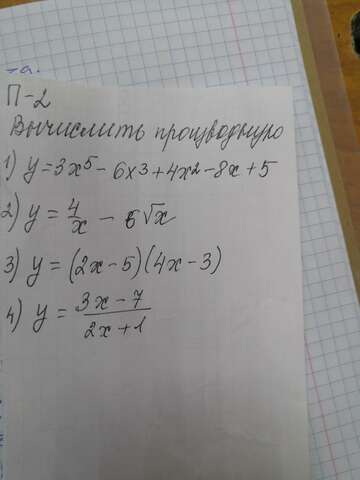 П-2
Вычислить производную
1) y=3x⁵-6x³+4x²-8x+5
2) y = 4/x - 6√x
3) y = (2x-5)(4x-3)
4) y = (3x-7)/(2x+1)